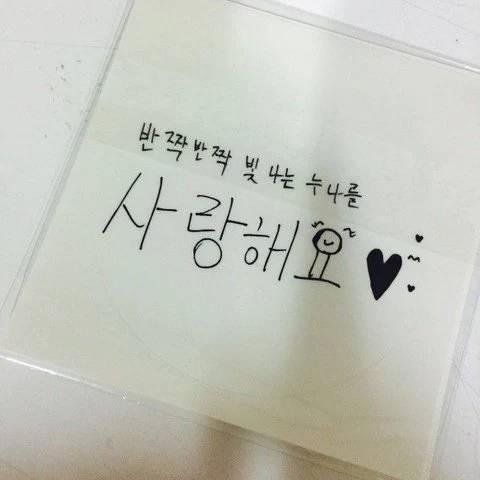 반짝반짝 빛나는 누나를
사랑해요